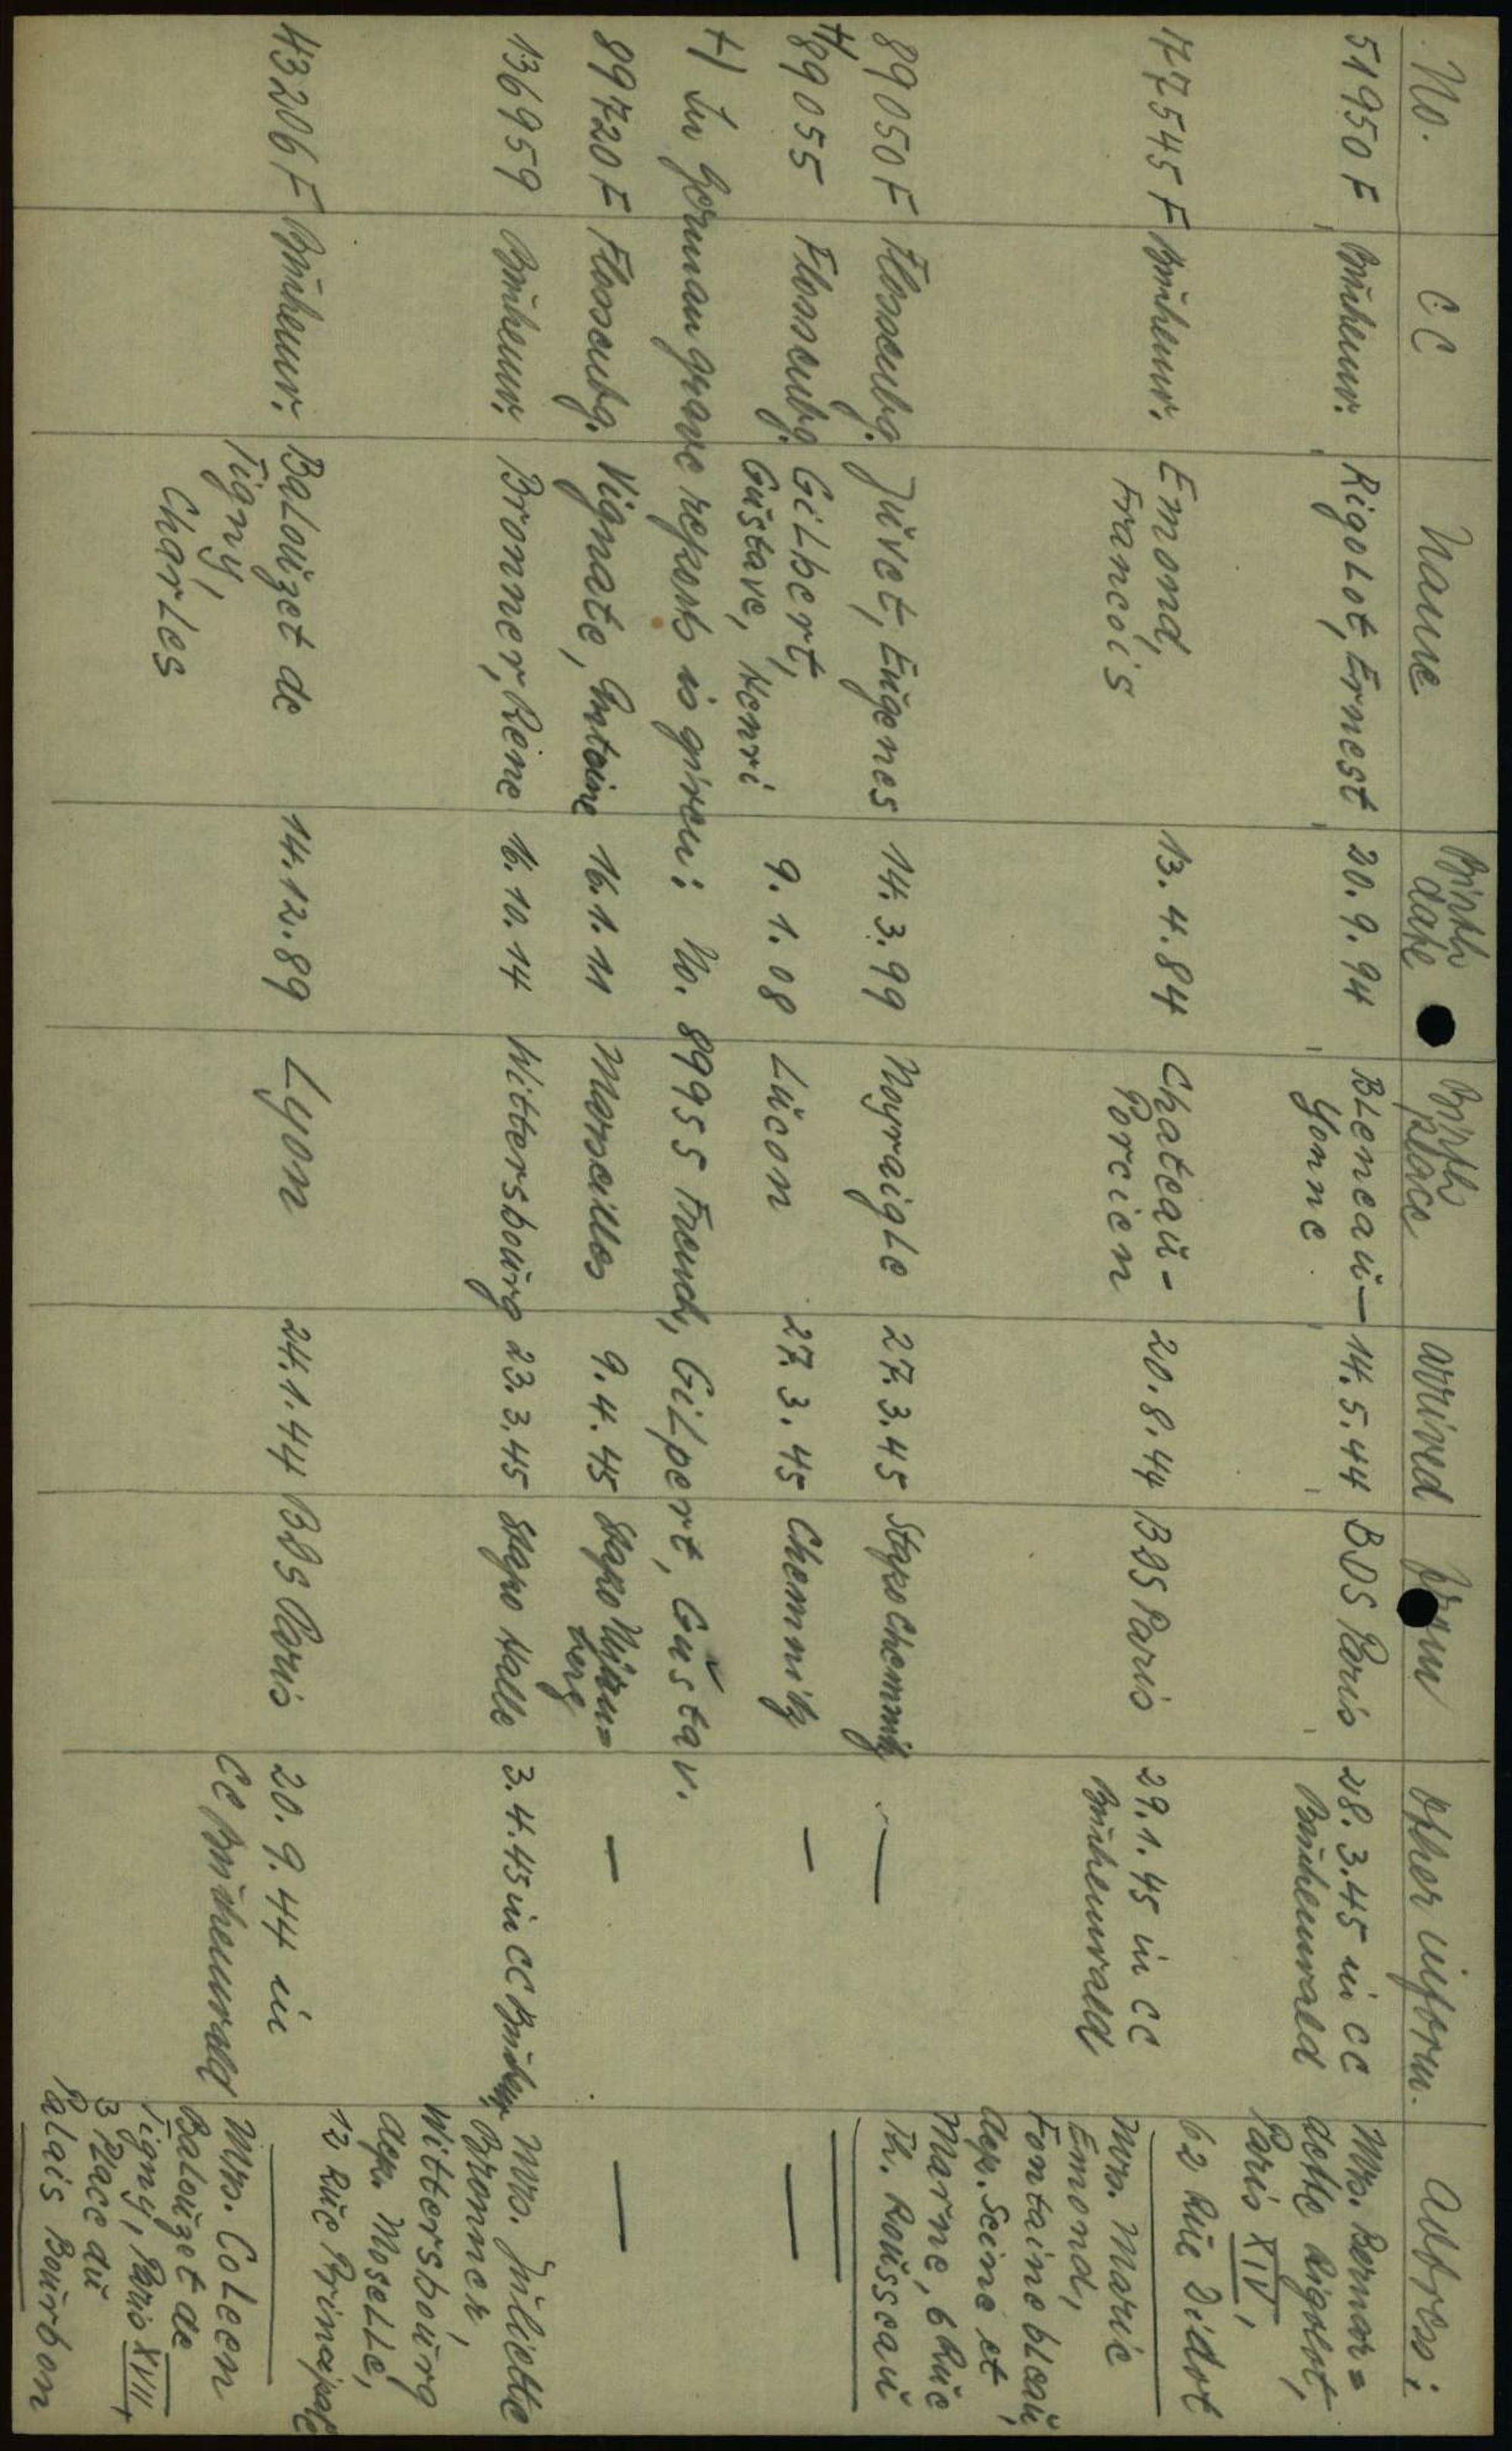 No. CC Name Birth date Birth place arrived from other inform. Address:
51950 F Buchenw. Rigolot, Ernest 20.9.94 Bleneau- 14.5.44 BDS Paris 28.3.45 in CC Mrs. Bernar=
Yonne Buchenwald dette Rigolot,
Paris XIV,
62 Rue Didot
77545 F Buchenw. Emond, 13.4.84 Chateau- 20.8.44 BDS Paris 29.1.45 in CC Mrs. Marie
Francois Porcien Buchenwald Emond,
Fontainebleau,
dep. Seine et
Marne, 6 Rue
Th. Rousseau
89050 F Flossenbg. Juvet, Eugenes 14.3.99 Noyraigle 27.3.45 Stapo Chemnitz —
+) 89055 Flossenbg. Gilbert, 9.1.08 Lucon 27.3.45 Chemnitz — —
Gustave, Henri
+) In German grave reports is given: No. 89955 Freund, Gilpert, Gustav.
89720 F Flossenbg. Vignate, Antoine 16.1.11 Marseilles 9.4.45 Stapo Nürn= — —
berg
136959 Buchenw. Bronner, Rene 16.10.14 Wittersbourg 23.3.45 Stapo Halle 3.4.45 in CC Buchenw. Mrs. Juliette
Bronner,
Wittersbourg
dep. Moselle,
12 Rue Principale
43206 F Buchenw. Balouzet de 14.12.89 Lyon 24.1.44 BDS Paris 20.9.44 in Mrs. Coleen
Tigny, CC Buchenwald Balouzet de
Charles Tigny, Paris XVII,
3 Place du
Palais Bourbon